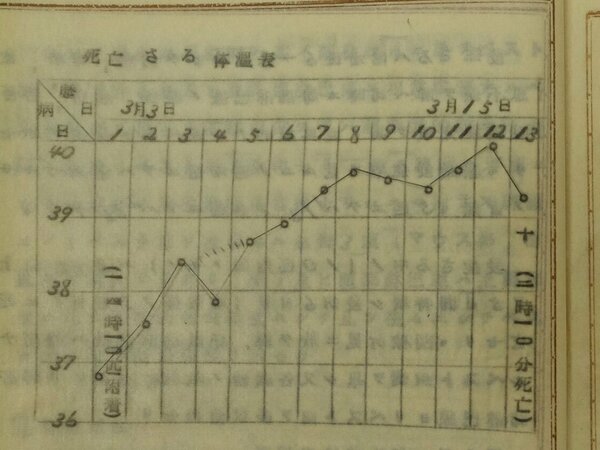 死亡さる体温表
暦日
3月3日
3月15日
病日
1 2 3 4 5 6 7 8 9 10 11 12 13
40
39
38
37
36
十
時一〇分死亡)